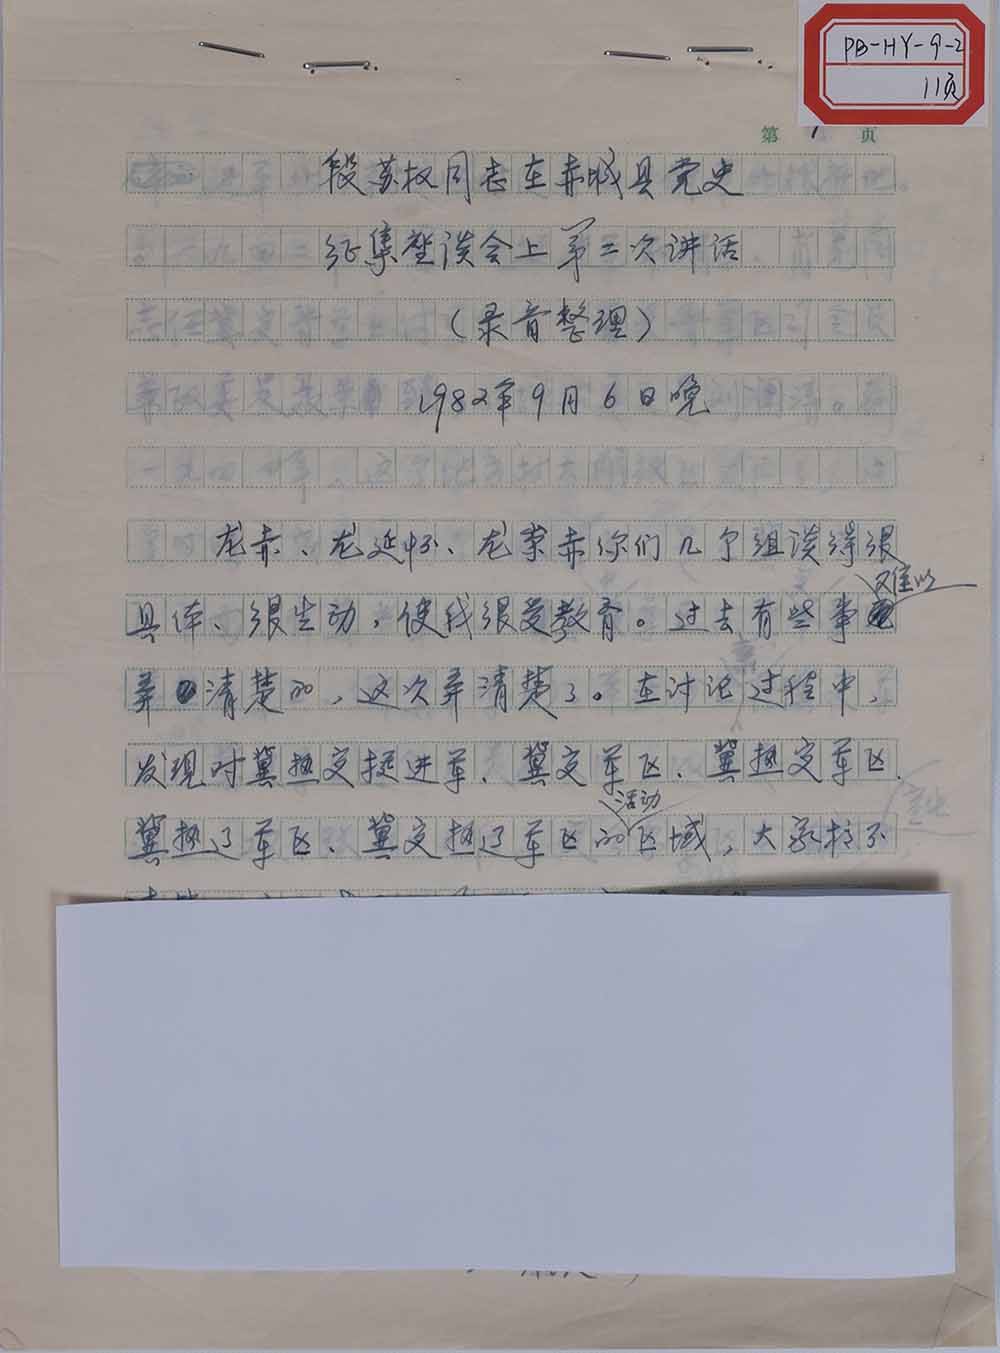 PB-HY-9-2
11页
第 1 页
段苏权同志在赤城县党史
征集座谈会上第三次讲话
（录音整理）
1982年9月6日晚
龙赤、龙延怀、龙崇赤你们几个组谈得很
具体、很生动，使我很受教育。过去有些事难以
弄清楚的，这次弄清楚了。在讨论过程中，
发现对冀热察挺进军、冀察军区、冀热察军区、
冀热辽军区、冀察热辽军区的活动区域，大家核不